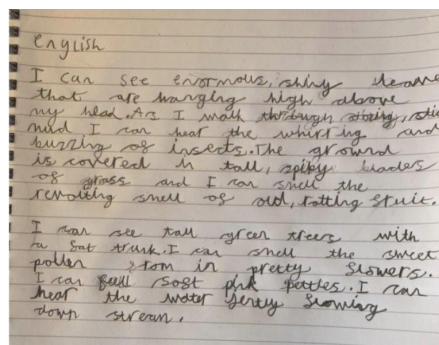 english
I can see enormous, shiny leave
that are hanging high above
my head. As I walk through string, stic
mud, I can hear the whirring and
buzzing of insects. The ground
is covered in tall, spiky blades
of grass and I can smell the
revolting smell of old, rotting fruit.
I can see tall green trees with
a fat trunk. I can smell the sweet
pollen from in pretty flowers.
I can feel soft pink pettles. I can
hear the water gently flowing
down stream.